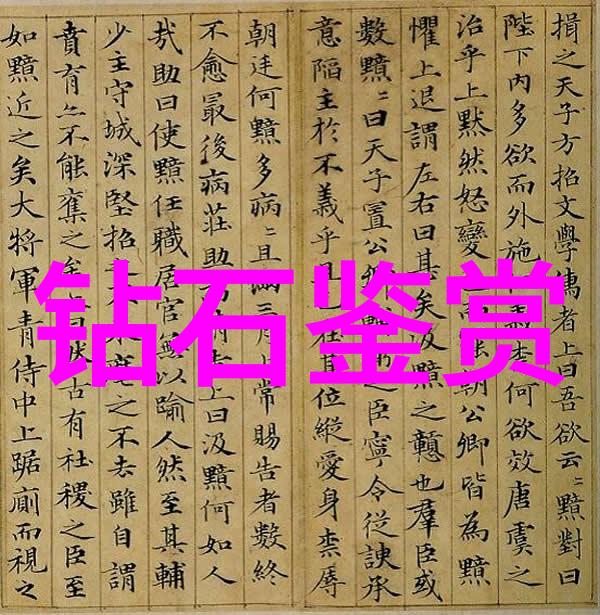 揖之天子方招文學儒者上曰吾欲云〻黯對曰
陛下内多欲而外施義柰何欲效唐虞之
治乎上黙然怒變而罷朝公卿皆為黯
懼上退謂左右曰甚矣汲黯之戇也羣臣或
數黯〻曰天子置公卿之臣寧令從諛承
意陷主於不義乎且在其位縱愛身柰辱
朝廷何黯多病〻且滿三月上常賜告者數終
不愈最後病莊助請告上曰汲黯何如人
㢤助曰使黯任職居官無以踰人然至其輔
少主守城深堅招來麾之不去雖自謂
賁育亦不能奪之矣上曰然古有社稷之臣至
如黯近之矣大將軍青侍中上踞廁而視之
钻石鉴赏